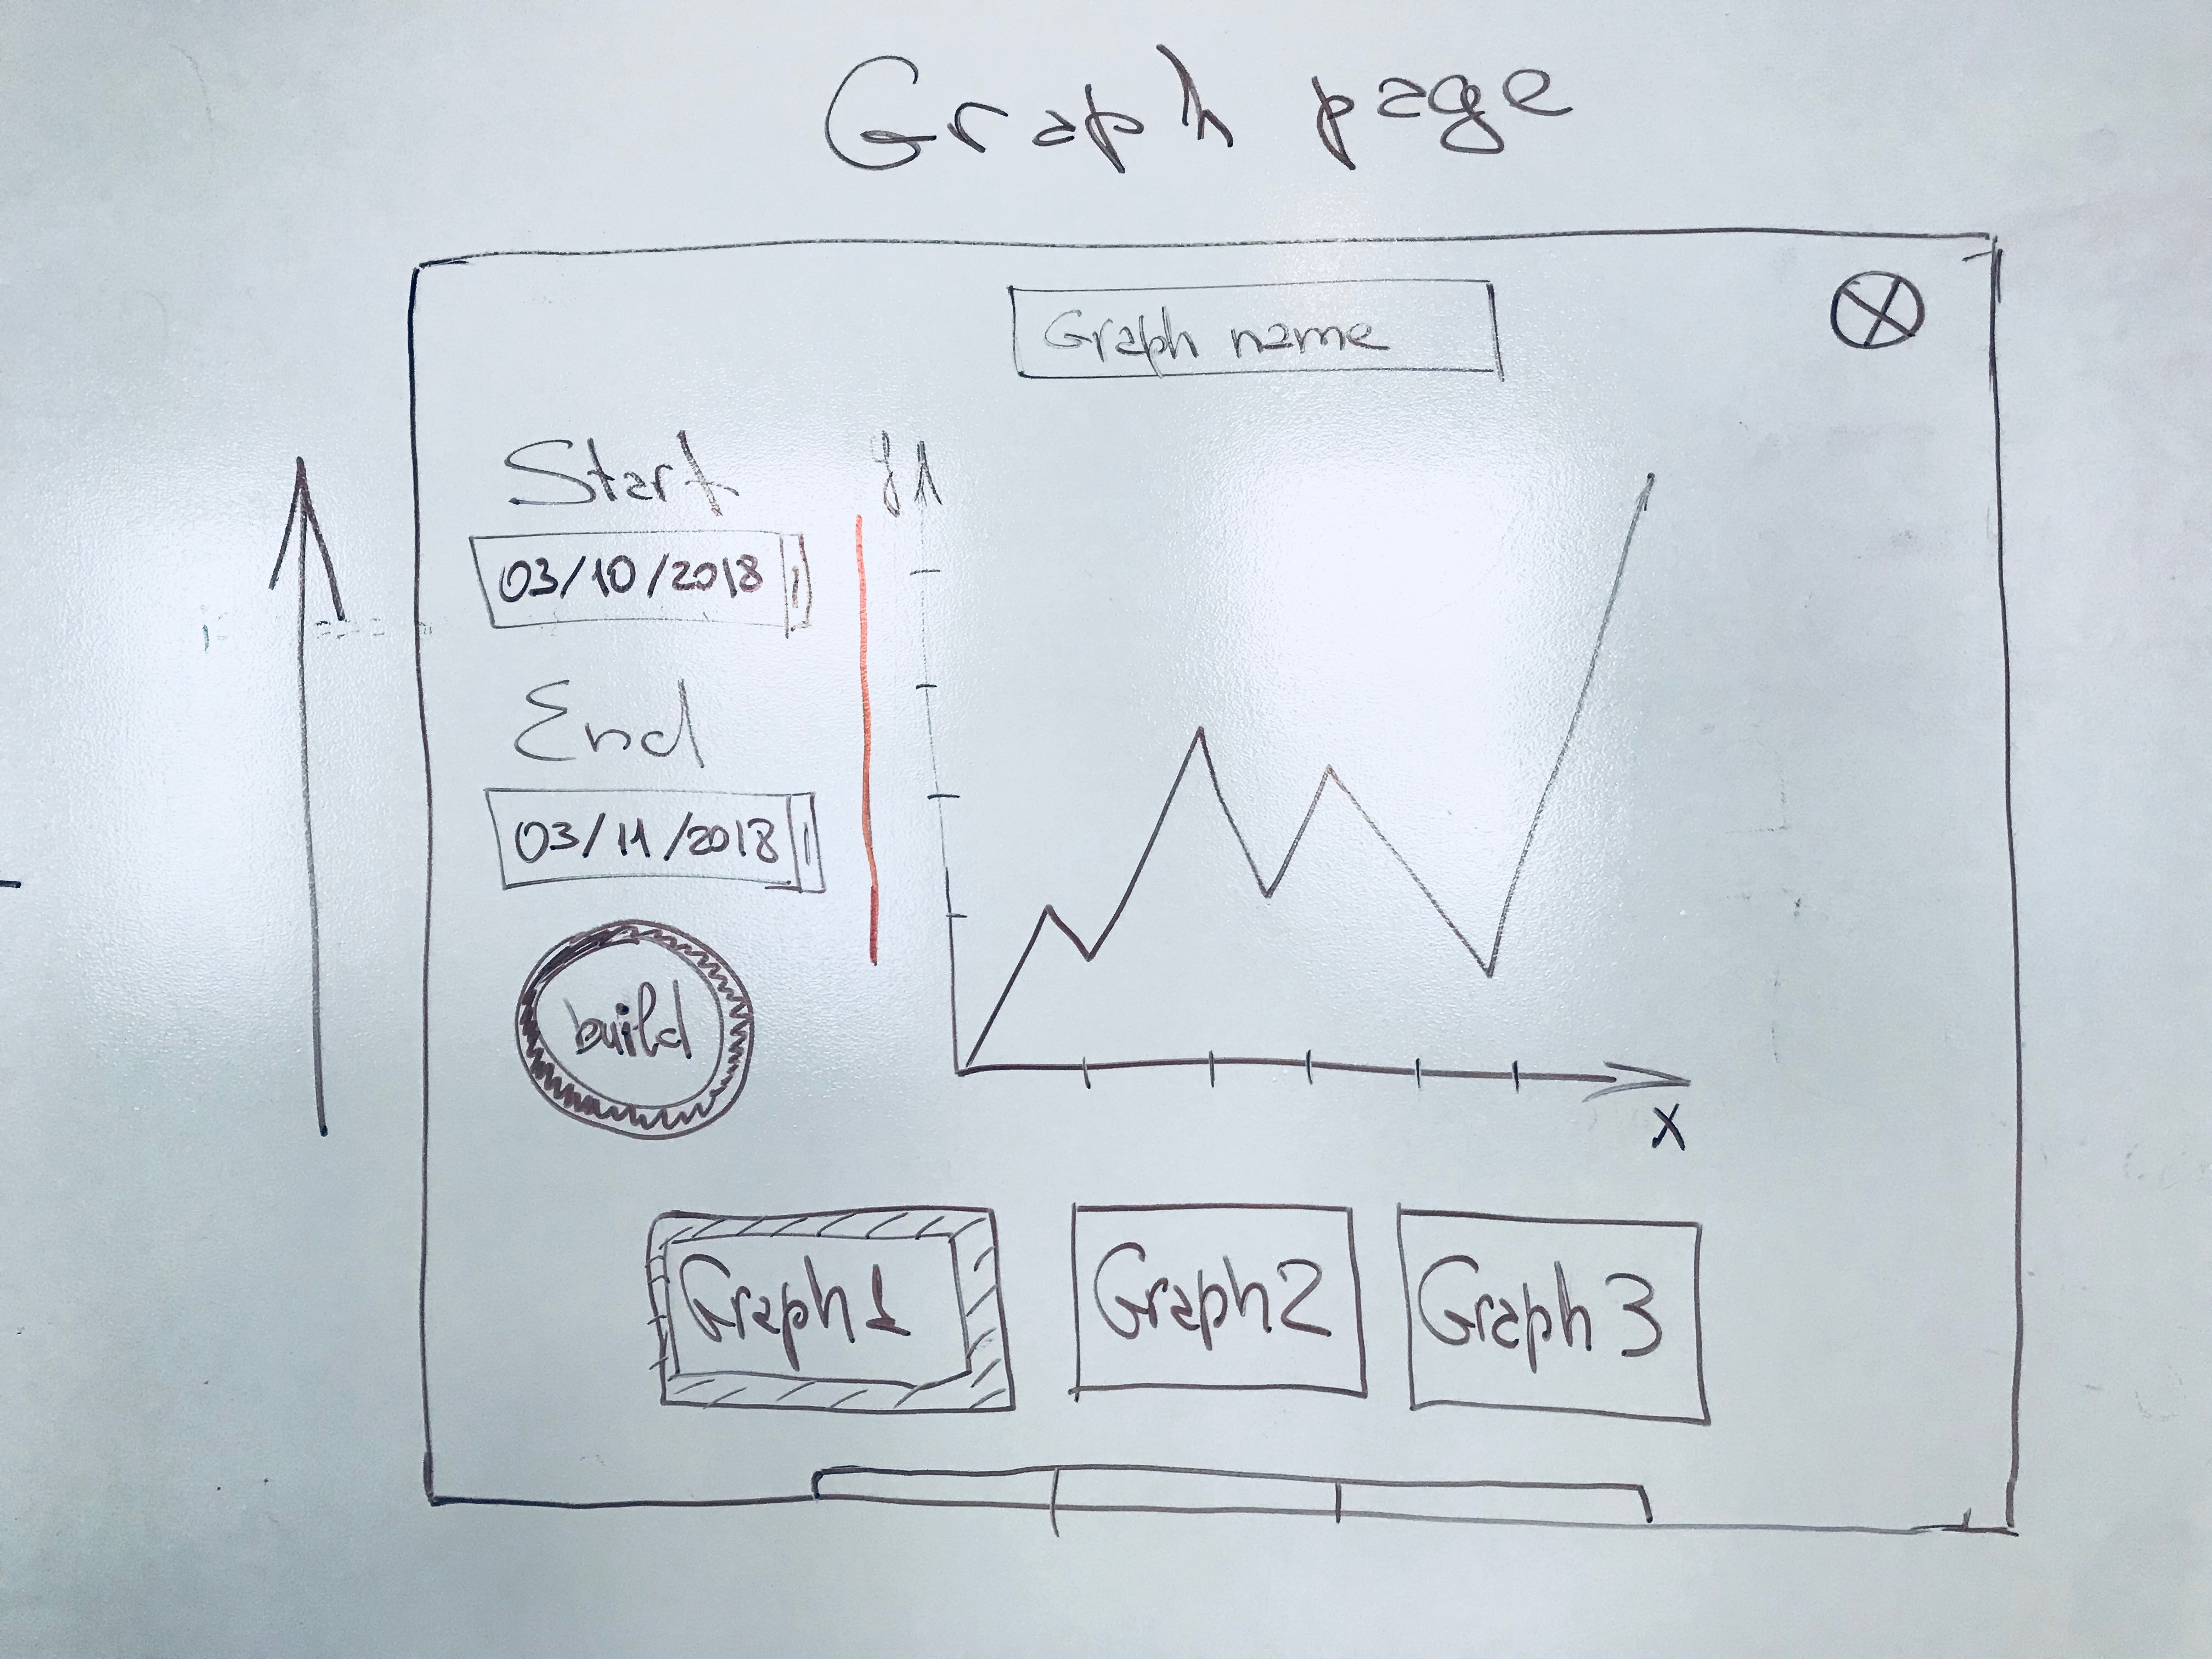 Graph page
Graph name
Start
y
03/10/2018
End
03/11/2018
build
x
Graph 1
Graph 2
Graph 3